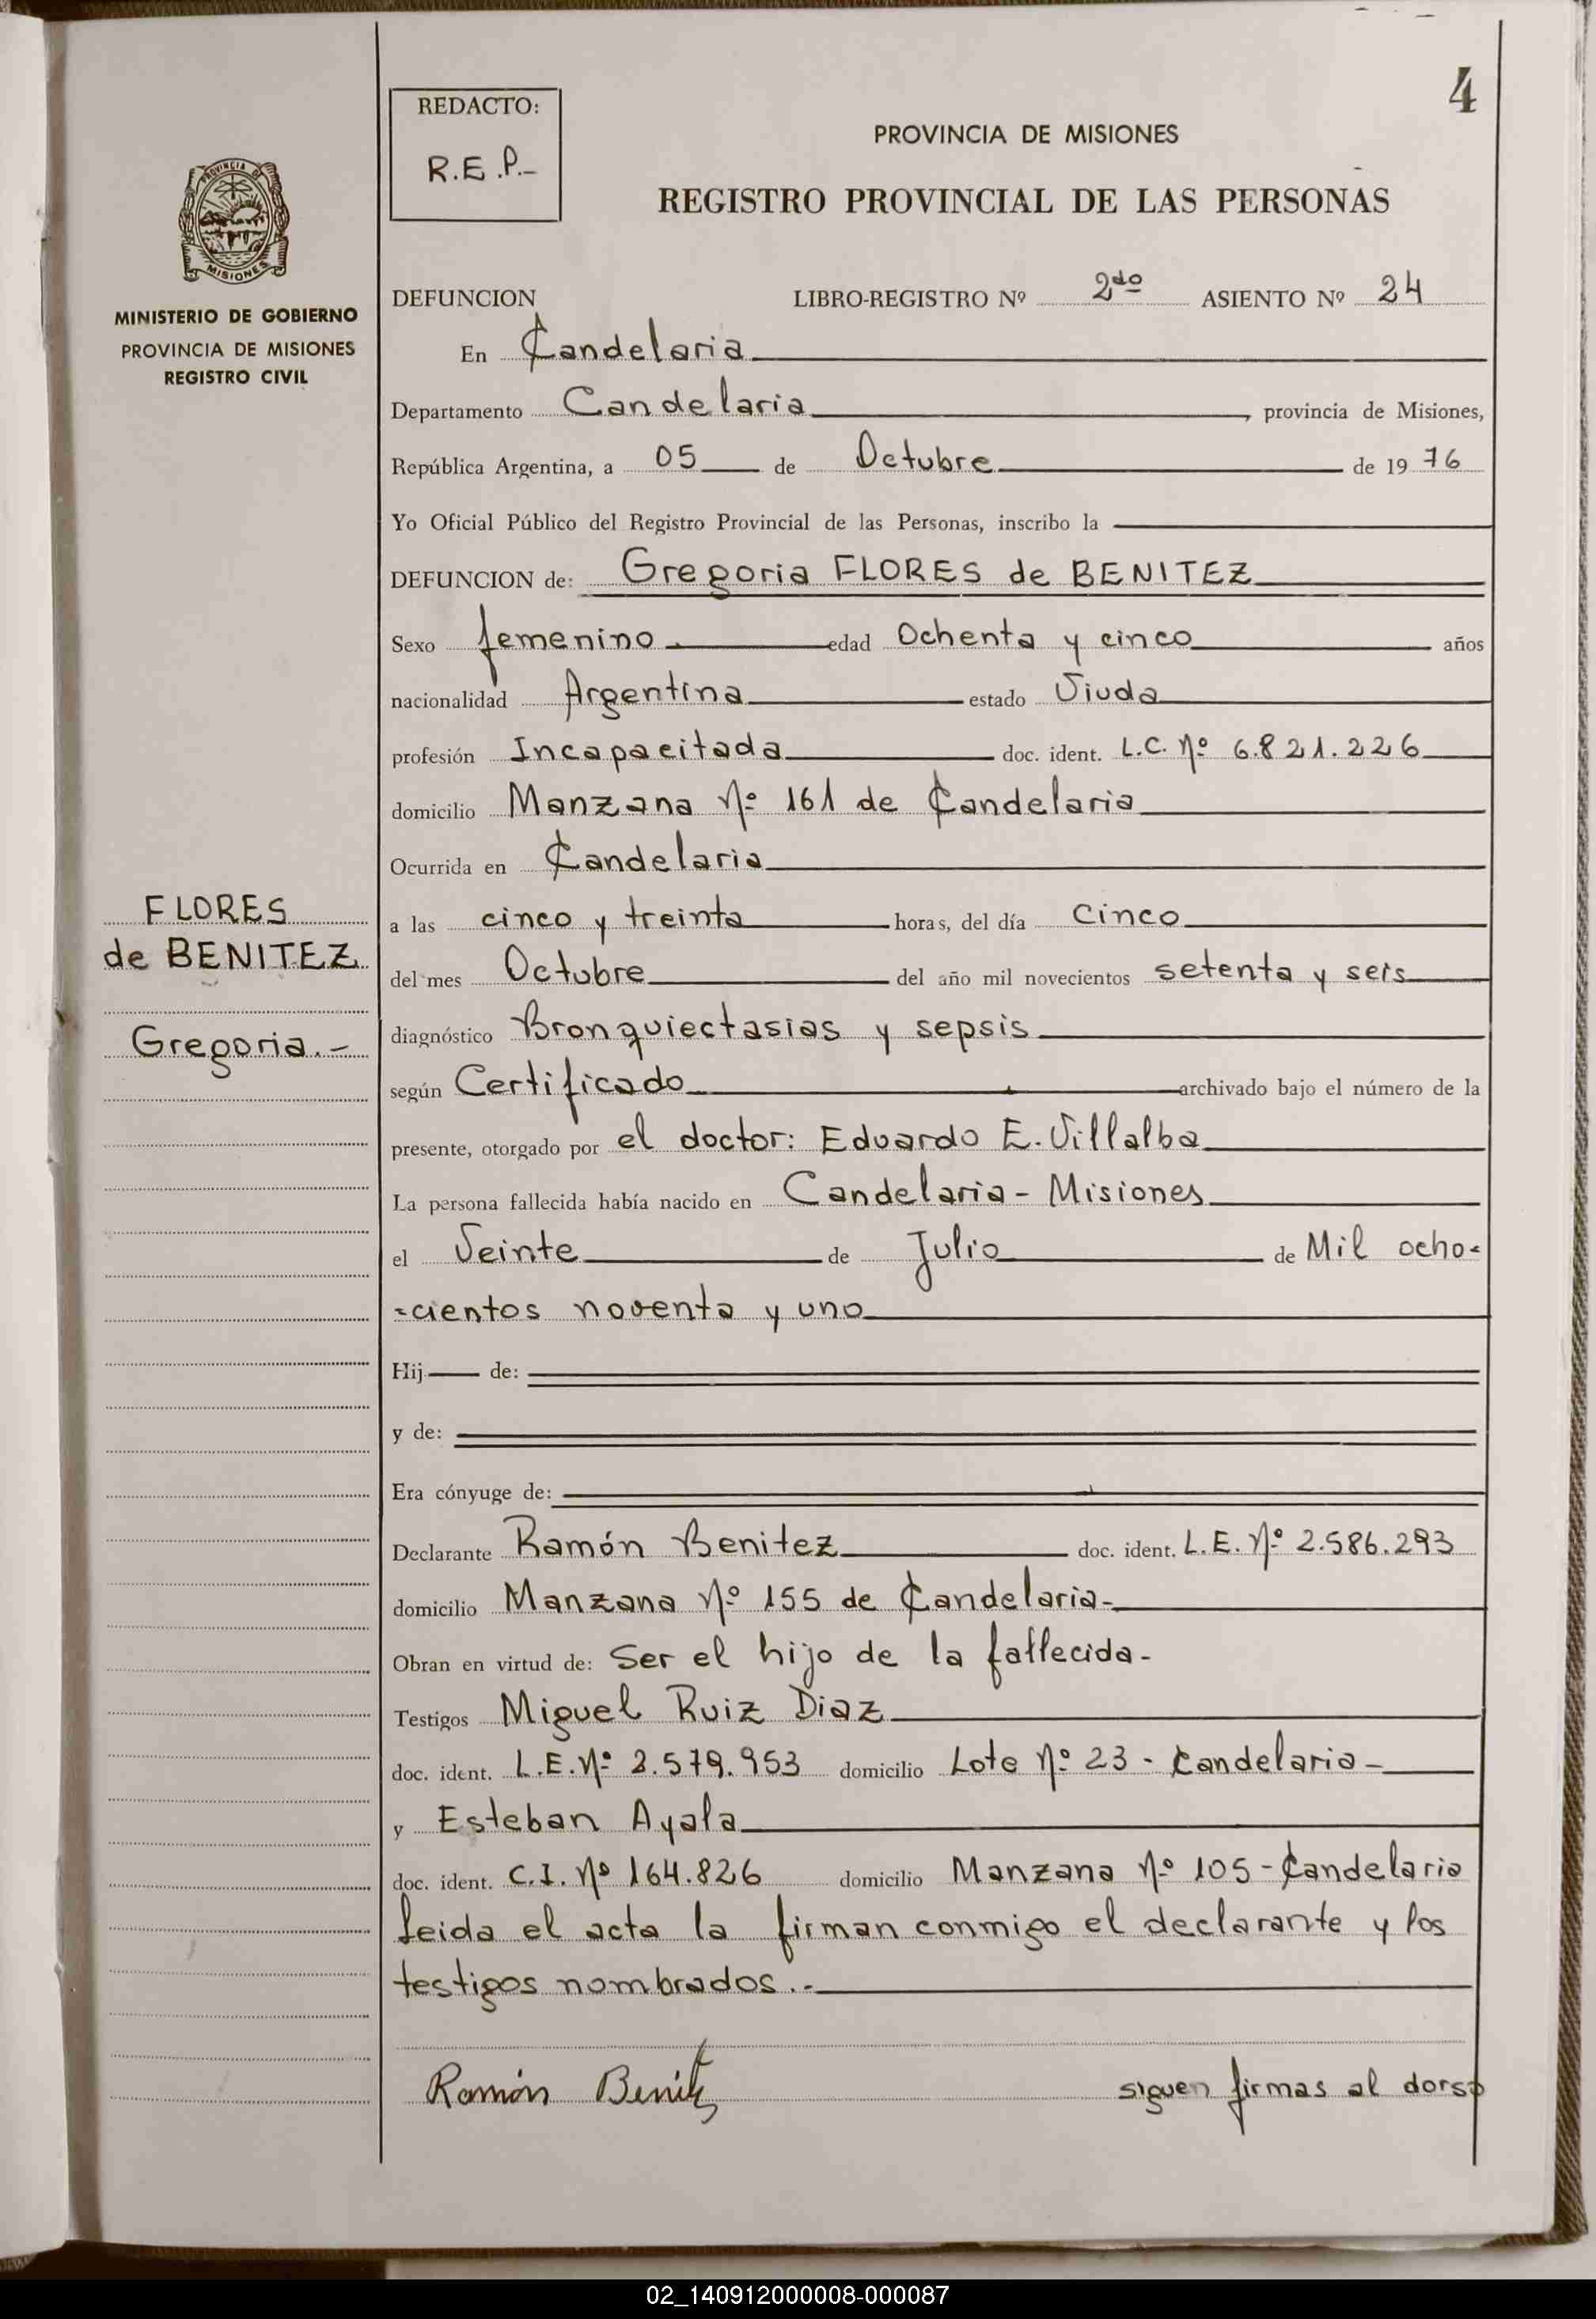 4
REDACTO:
R.E.P.-
PROVINCIA DE MISIONES
REGISTRO PROVINCIAL DE LAS PERSONAS
PROVINCIA DE
MISIONES
MINISTERIO DE GOBIERNO
PROVINCIA DE MISIONES
REGISTRO CIVIL
DEFUNCION LIBRO-REGISTRO Nº 2do ASIENTO Nº 24
En Candelaria
Departamento Candelaria, provincia de Misiones,
República Argentina, a 05 de Octubre de 1976
Yo Oficial Público del Registro Provincial de las Personas, inscribo la
DEFUNCION de: Gregoria FLORES de BENITEZ
Sexo femenino edad Ochenta y cinco años
nacionalidad Argentina estado Viuda
profesión Incapacitada doc. ident. L.C. Nº 6.821.226
domicilio Manzana Nº 161 de Candelaria
Ocurrida en Candelaria
FLORES
de BENITEZ
Gregoria.-
a las cinco y treinta horas, del día cinco
del mes Octubre del año mil novecientos setenta y seis
diagnóstico Bronquiectasias y sepsis
según Certificado archivado bajo el número de la
presente, otorgado por el doctor: Eduardo E. Villalba
La persona fallecida había nacido en Candelaria - Misiones
el Veinte de Julio de Mil ocho-
-cientos noventa y uno
Hij de:
y de:
Era cónyuge de:
Declarante Ramón Benitez doc. ident. L.E. Nº 2.586.293
domicilio Manzana Nº 155 de Candelaria-
Obran en virtud de: Ser el hijo de la fallecida-
Testigos Miguel Ruiz Diaz
doc. ident. L.E. Nº 2.579.953 domicilio Lote Nº 23 - Candelaria-
y Esteban Ayala
doc. ident. C.I. Nº 164.826 domicilio Manzana Nº 105 - Candelaria
leida el acta la firman conmigo el declarante y los
testigos nombrados.-
Ramón Benitz siguen firmas al dorso
02_140912000008-000087